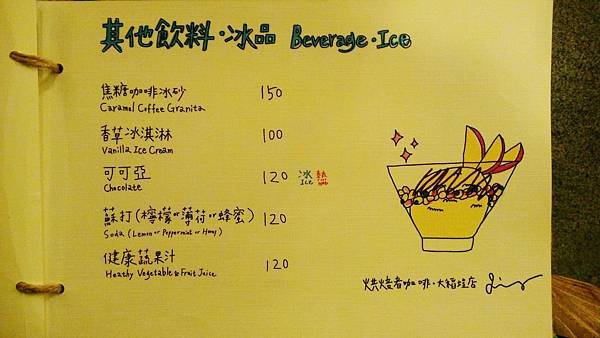 其他飲料·冰品 Beverage·Ice
焦糖咖啡冰砂 150
Caramel Coffee Granita
香草冰淇淋 100
Vanilla Ice Cream
可可亞 120 冰 熱
Chocolate Ice
蘇打(檸檬or薄荷or蜂蜜) 120
Soda (Lemon or Peppermint or Honey)
健康蔬果汁 120
Heathy Vegetable & Fruit Juice
烘焙者咖啡·大稻埕店